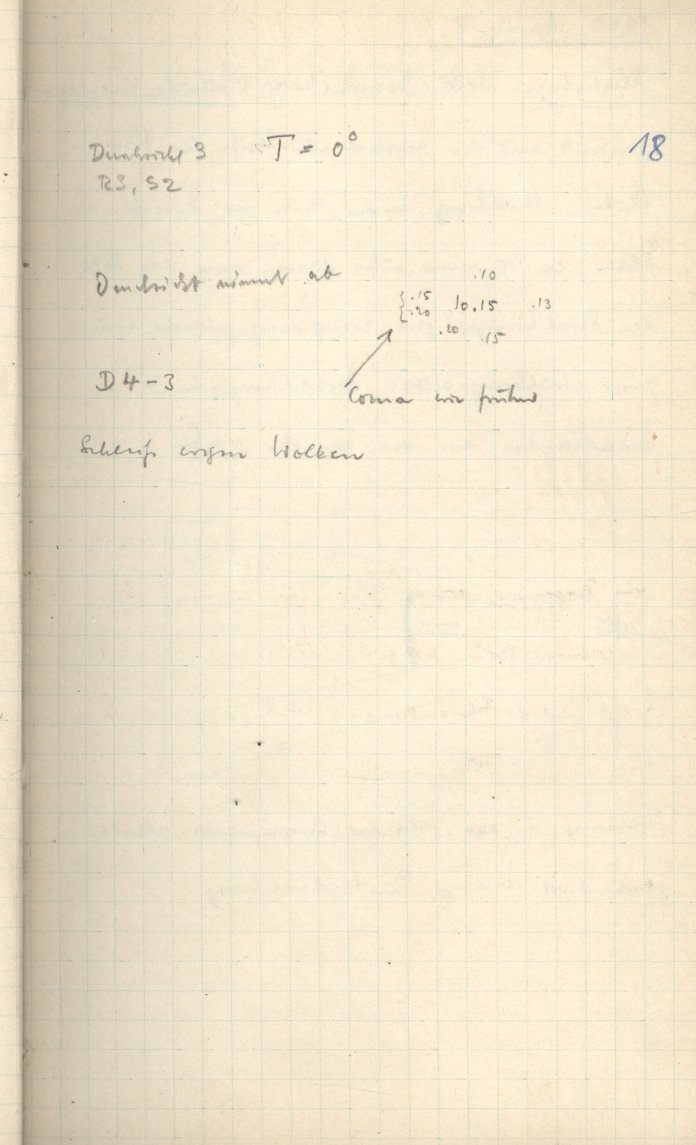 Durchsicht 3 T = 0° 18
R3, S2
Durchsicht nimmt ab
.10
.15 10.15 .13
.20
.20 .15
D4-3
Coma wie früher
Schluß wegen Wolken